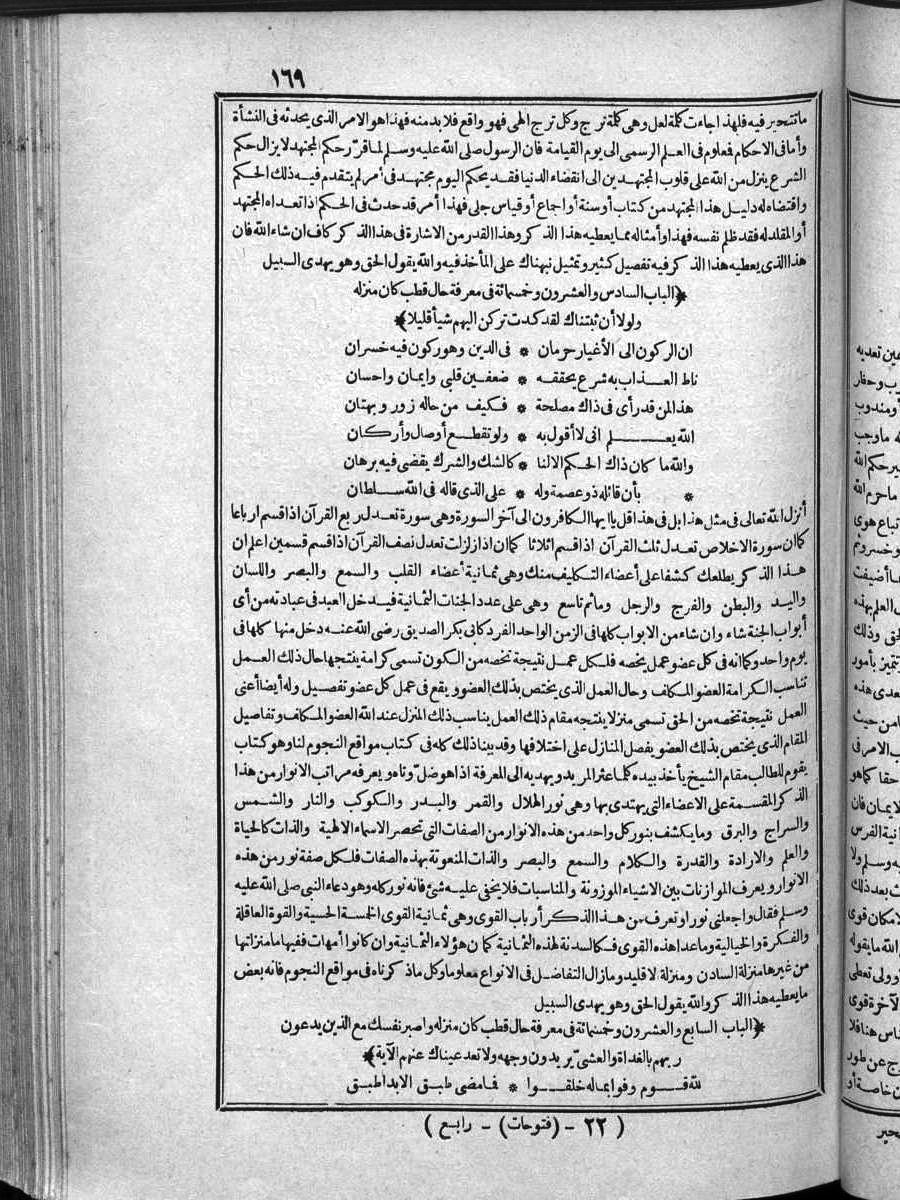 ١٦٩
ما تتحير فيه فلهذا جاءت كلمة لعل وهى كلمة ترج وكل ترج الهى فهو واقع فلا بد منه فهذا هو الامر الذى يحدثه فى النشأة
وأما فى الاحكام فعلوم فى العلم الرسمى الى يوم القيامة فان الرسول صلى الله عليه وسلم لما قرّر حكم المجتهد لا يزال حكم
الشرع ينزل من الله على قلوب المجتهدين الى انقضاء الدنيا فقد يحكم اليوم مجتهد فى أمر لم يتقدم فيه ذلك الحكم
واقتضاه له دليل هذا المجتهد من كتاب أو سنة أو اجماع أو قياس جلى فهذا أمر قد حدث فى الحكم اذا تعداه المجتهد
أو المقلد له فقد ظلم نفسه فهذا وأمثاله مما يعطيه هذا الذكر وهذا القدر من الاشارة فى هذا الذكر كاف ان شاء الله فان
هذا الذى يعطيه هذا الذكر فيه تفصيل كثير وتمثيل نبهناك على المأخذ فيه والله يقول الحق وهو يهدى السبيل
﴿الباب السادس والعشرون وخمسمائة فى معرفة حال قطب كان منزله
ولولا أن ثبتناك لقد كدت تركن اليهم شيأ قليلا﴾
ان الركون الى الأغيار حرمان * فى الدين وهو ركون فيه خسران
ناط العذاب به شرع يحققه * ضعفين قلبى وايمان واحسان
هذا لمن قد رأى فى ذاك مصلحة * فكيف من حاله زور وبهتان
الله يعلم انى لا أقول به * ولو تقطع أوصال وأركان
والله ما كان ذاك الحكم الا لنا * كالشك والشرك يقضى فيه برهان
* بأن قائله ذو عصمة وله * على الذى قاله فى الله سلطان
أنزل الله تعالى فى مثل هذا بل فى هذا قل يا ايها الكافرون الى آخر السورة وهى سورة تعدل ربع القرآن اذا قسم ارباعا
كما ان سورة الاخلاص تعدل ثلث القرآن اذا قسم اثلاثا كما ان اذا زلزلت تعدل نصف القرآن اذا قسم قسمين اعلم ان
هذا الذكر يطلعك كشفا على أعضاء التكليف منك وهى ثمانية أعضاء القلب والسمع والبصر واللسان
واليد والبطن والفرج والرجل وما ثم تاسع وهى على عدد الجنات الثمانية فيدخل العبد فى عبادته من أى
أبواب الجنة شاء وان شاء من الابواب كلها فى الزمن الواحد الفرد كابى بكر الصديق رضى الله عنه دخل منها كلها فى
يوم واحد وكما انه فى كل عضو عمل يخصه فلكل عمل نتيجة تخصه من الكون تسمى كرامة ينتجها حال ذلك العمل
تناسب الكرامة العضو المكلف وحال العمل الذى يختص بذلك العضو ويقع فى عمل كل عضو تفصيل وله أيضا أعنى
العمل نتيجة تخصه من الحق تسمى منزلا ينتجه مقام ذلك العمل يناسب ذلك المنزل عند الله العضو المكلف وتفاصيل
المقام الذى يختص بذلك العضو يفصل المنازل على اختلافها وقد بينا ذلك كله فى كتاب مواقع النجوم لنا وهو كتاب
يقوم للطالب مقام الشيخ يأخذ بيده كلما عثر المريد ويهديه الى المعرفة اذا هو ضلّ وتاه ويعرفه مراتب الانوار من هذا
الذكر المقسمة على الاعضاء التى يهتدى بها وهى نور الهلال والقمر والبدر والكوكب والنار والشمس
والسراج والبرق وما يكشف بنور كل واحد من هذه الانوار من الصفات التى تحصر الاسماء الالهية والذات كالحياة
والعلم والارادة والقدرة والكلام والسمع والبصر والذات المنعوتة بهذه الصفات فلكل صفة نور من هذه
الانوار ويعرف الموازنات بين الاشياء الموزونة والمناسبات فلا يخفى عليه شئ فانه نور كله وهو دعاء النبى صلى الله عليه
وسلم فقال واجعلنى نورا وتعرف من هذا الذكر أرباب القوى وهى ثمانية القوى الخمسة الحسية والقوة العاقلة
والفكرة والخيالية وما عدا هذه القوى فكالسدنة لهذه الثمانية كما ان هؤلاء الثمانية وان كانوا أمهات ففيها ما منزلتها
من غيرها منزلة السادن ومنزلة لا قليد وما زال التفاضل فى الانواع معلوما وكل ما ذكرناه فى مواقع النجوم فانه بعض
ما يعطيه هذا الذكر والله يقول الحق وهو يهدى السبيل
﴿الباب السابع والعشرون وخمسمائة فى معرفة حال قطب كان منزله واصبر نفسك مع الذين يدعون
ربهم بالغداة والعشىّ يريدون وجهه ولا تعد عيناك عنهم الآية﴾
لله قوم وفوا بما له خلقوا * فما مضى طبق الا بدا طبق
( ٢٢ - (فتوحات) - رابع )